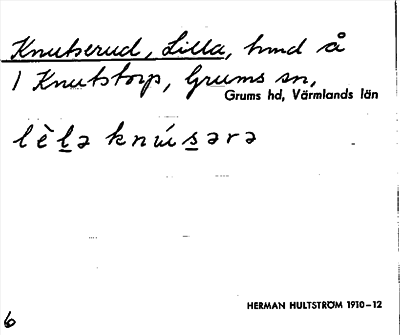 Knutserud, Lilla, hmd å
1 Knutstorp, Grums sn,
Grums hd, Värmlands län
lèl̲ə knú s̲ərə
HERMAN HULTSTRÖM 1910–12
6